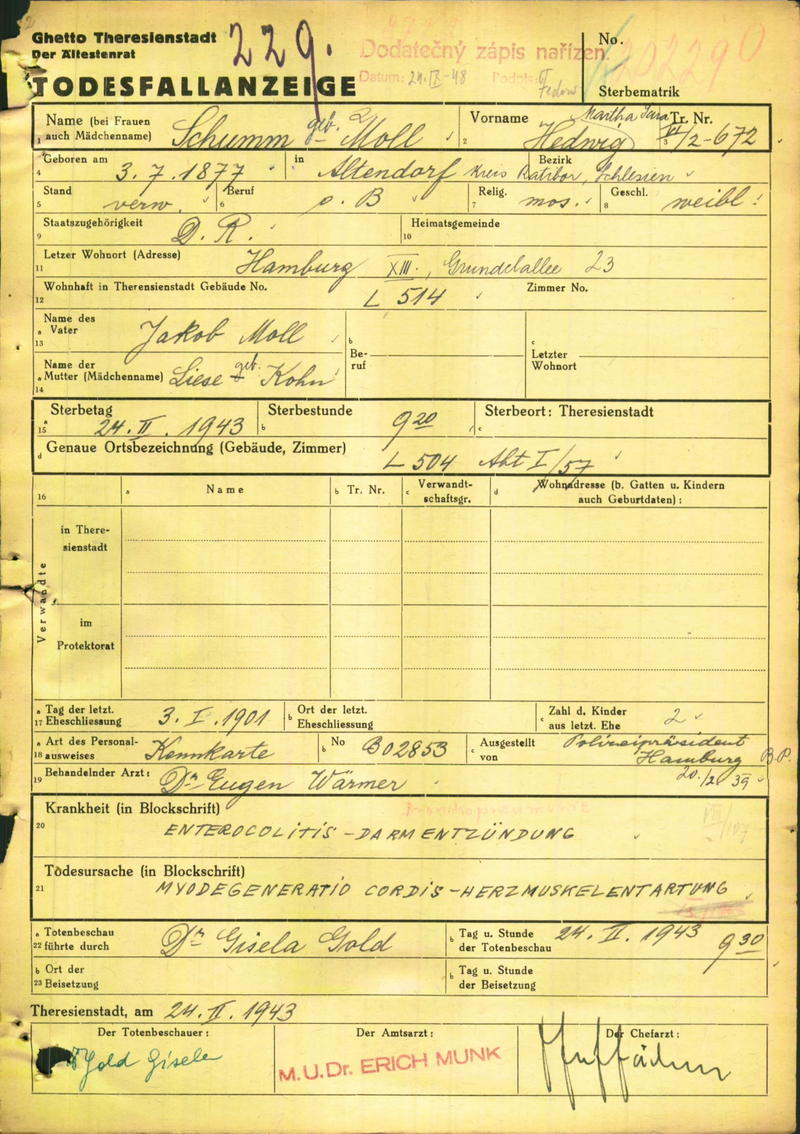 Ghetto Theresienstadt
Der Ältestenrat
229.
Dodatečný zápis nařízen.
Datum: 24.IX-48 Podpis:
No.
TODESFALLANZEIGE
Sterbematrik
Name (bei Frauen auch Mädchenname) Schumm geb. Moll
1
Vorname Hedwig Martha Sara
2
Tr. Nr. VI/2-672
3
Geboren am 3.7.1877 in Altendorf Kreis Ratibor, Schlesien
4
Bezirk
Stand verw. Beruf o. B Relig. mos. Geschl. weibl.
5 6 7 8
Staatszugehörigkeit D. R. Heimatsgemeinde
9 10
Letzer Wohnort (Adresse) Hamburg XIII., Grindelallee 23
11
Wohnhaft in Theresienstadt Gebäude No. L 514 Zimmer No.
12
Name des Vater Jakob Moll
a 13
Name der Mutter (Mädchenname) Liese geb. Kohn
a 14
b Beruf
c Letzter Wohnort
Sterbetag 24.II.1943 Sterbestunde 9 20 Sterbeort: Theresienstadt
a 15 b c
d Genaue Ortsbezeichnung (Gebäude, Zimmer) L 504 Abt I/57
16 a Name b Tr. Nr. c Verwandtschaftsgr. d Wohnadresse (b. Gatten u. Kindern auch Geburtdaten):
Verwandte
in Theresienstadt
im Protektorat
a 17 Tag der letzt. Eheschliessung 3.I.1901 b Ort der letzt. Eheschliessung c Zahl d. Kinder aus letzt. Ehe 2
a 18 Art des Personalausweises Kennkarte b No B02853 c Ausgestellt von Polizeipräsident Hamburg B.P.
20./2 39
19 Behandelnder Arzt: Dr Eugen Wärmer
Krankheit (in Blockschrift)
20 ENTEROCOLITIS - DARMENTZÜNDUNG
Todesursache (in Blockschrift)
21 MYODEGENERATIO CORDIS - HERZMUSKELENTARTUNG
a 22 Totenbeschau führte durch Dr Gisela Gold b Tag u. Stunde der Totenbeschau 24.II.1943 9 30
b 23 Ort der Beisetzung b Tag u. Stunde der Beisetzung
Theresienstadt, am 24.II.1943
Der Totenbeschauer: Der Amtsarzt: Der Chefarzt:
Gold Gisela
M.U.Dr. ERICH MUNK